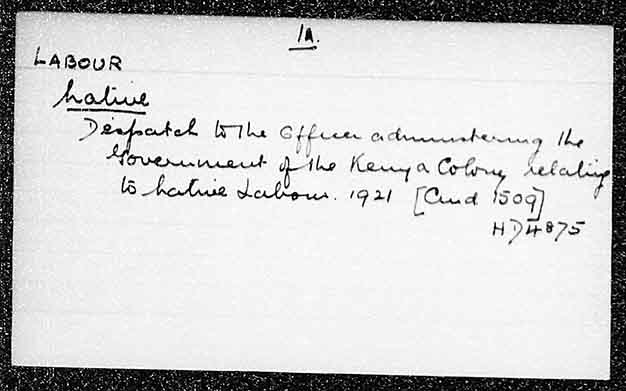 1A.
LABOUR
Native
Despatch to the Officer administering the
Government of the Kenya Colony relating
to Native Labour. 1921 [Cmd 1509]
HD4875